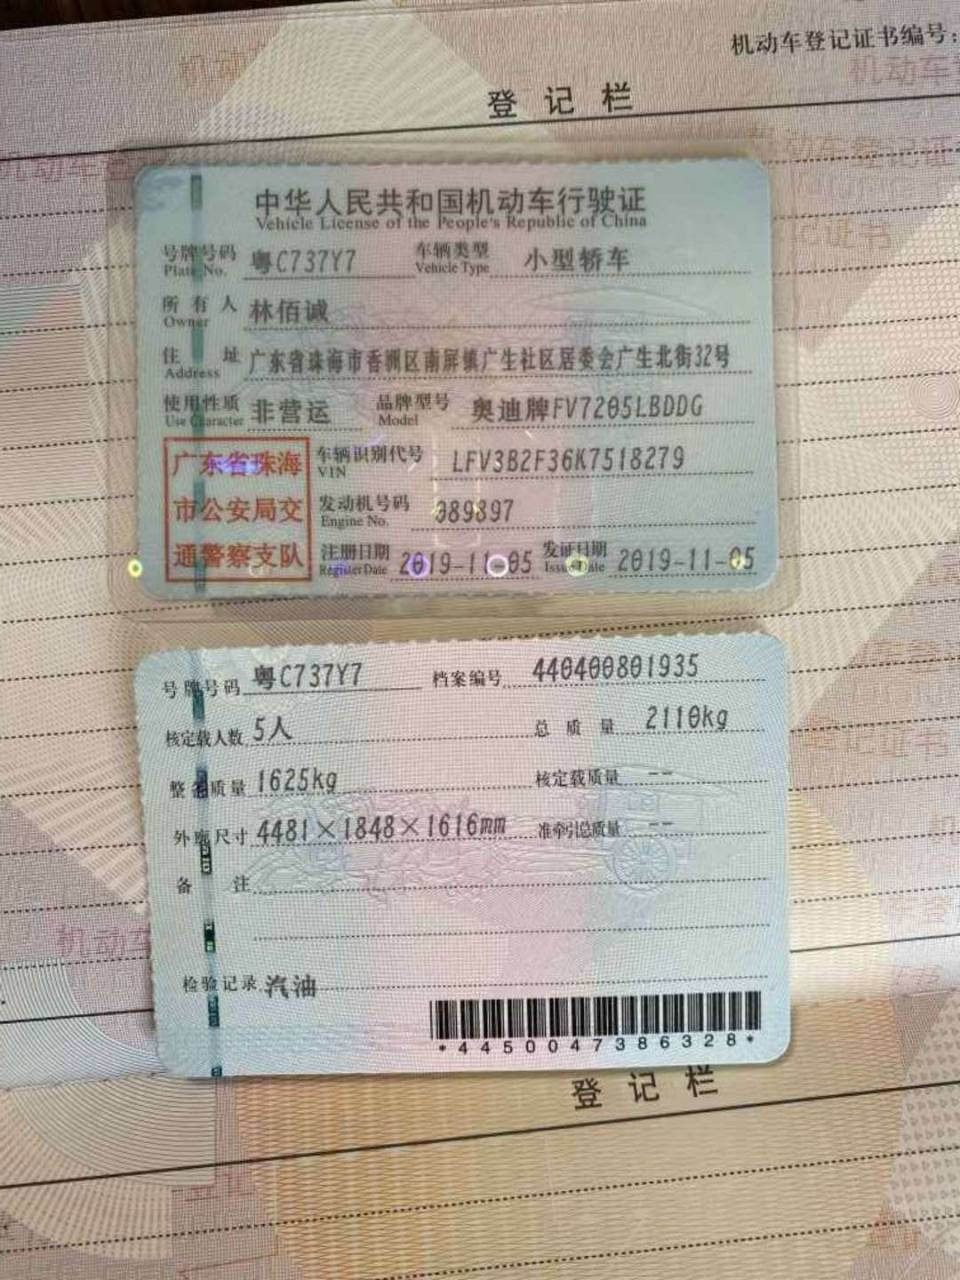 机动车登记证书编号:
登记栏
中华人民共和国机动车行驶证
Vehicle License of the People's Republic of China
号牌号码 粤C737Y7 车辆类型 小型轿车
Plate No. Vehicle Type
所有人 林佰诚
Owner
住址 广东省珠海市香洲区南屏镇广生社区居委会广生北街32号
Address
使用性质 非营运 品牌型号 奥迪牌FV7205LBDDG
Use Character Model
广东省珠海 车辆识别代号 LFV3B2F36K7518279
VIN
市公安局交 发动机号码 089897
Engine No.
通警察支队 注册日期 2019-11-05 发证日期 2019-11-05
Register Date Issue Date
号牌号码 粤C737Y7 档案编号 440400801935
核定载人数 5人 总质量 2110kg
整备质量 1625kg 核定载质量 --
外廓尺寸 4481×1848×1616mm 准牵引总质量 --
备注
检验记录 汽油
*4450047386328*
登记栏